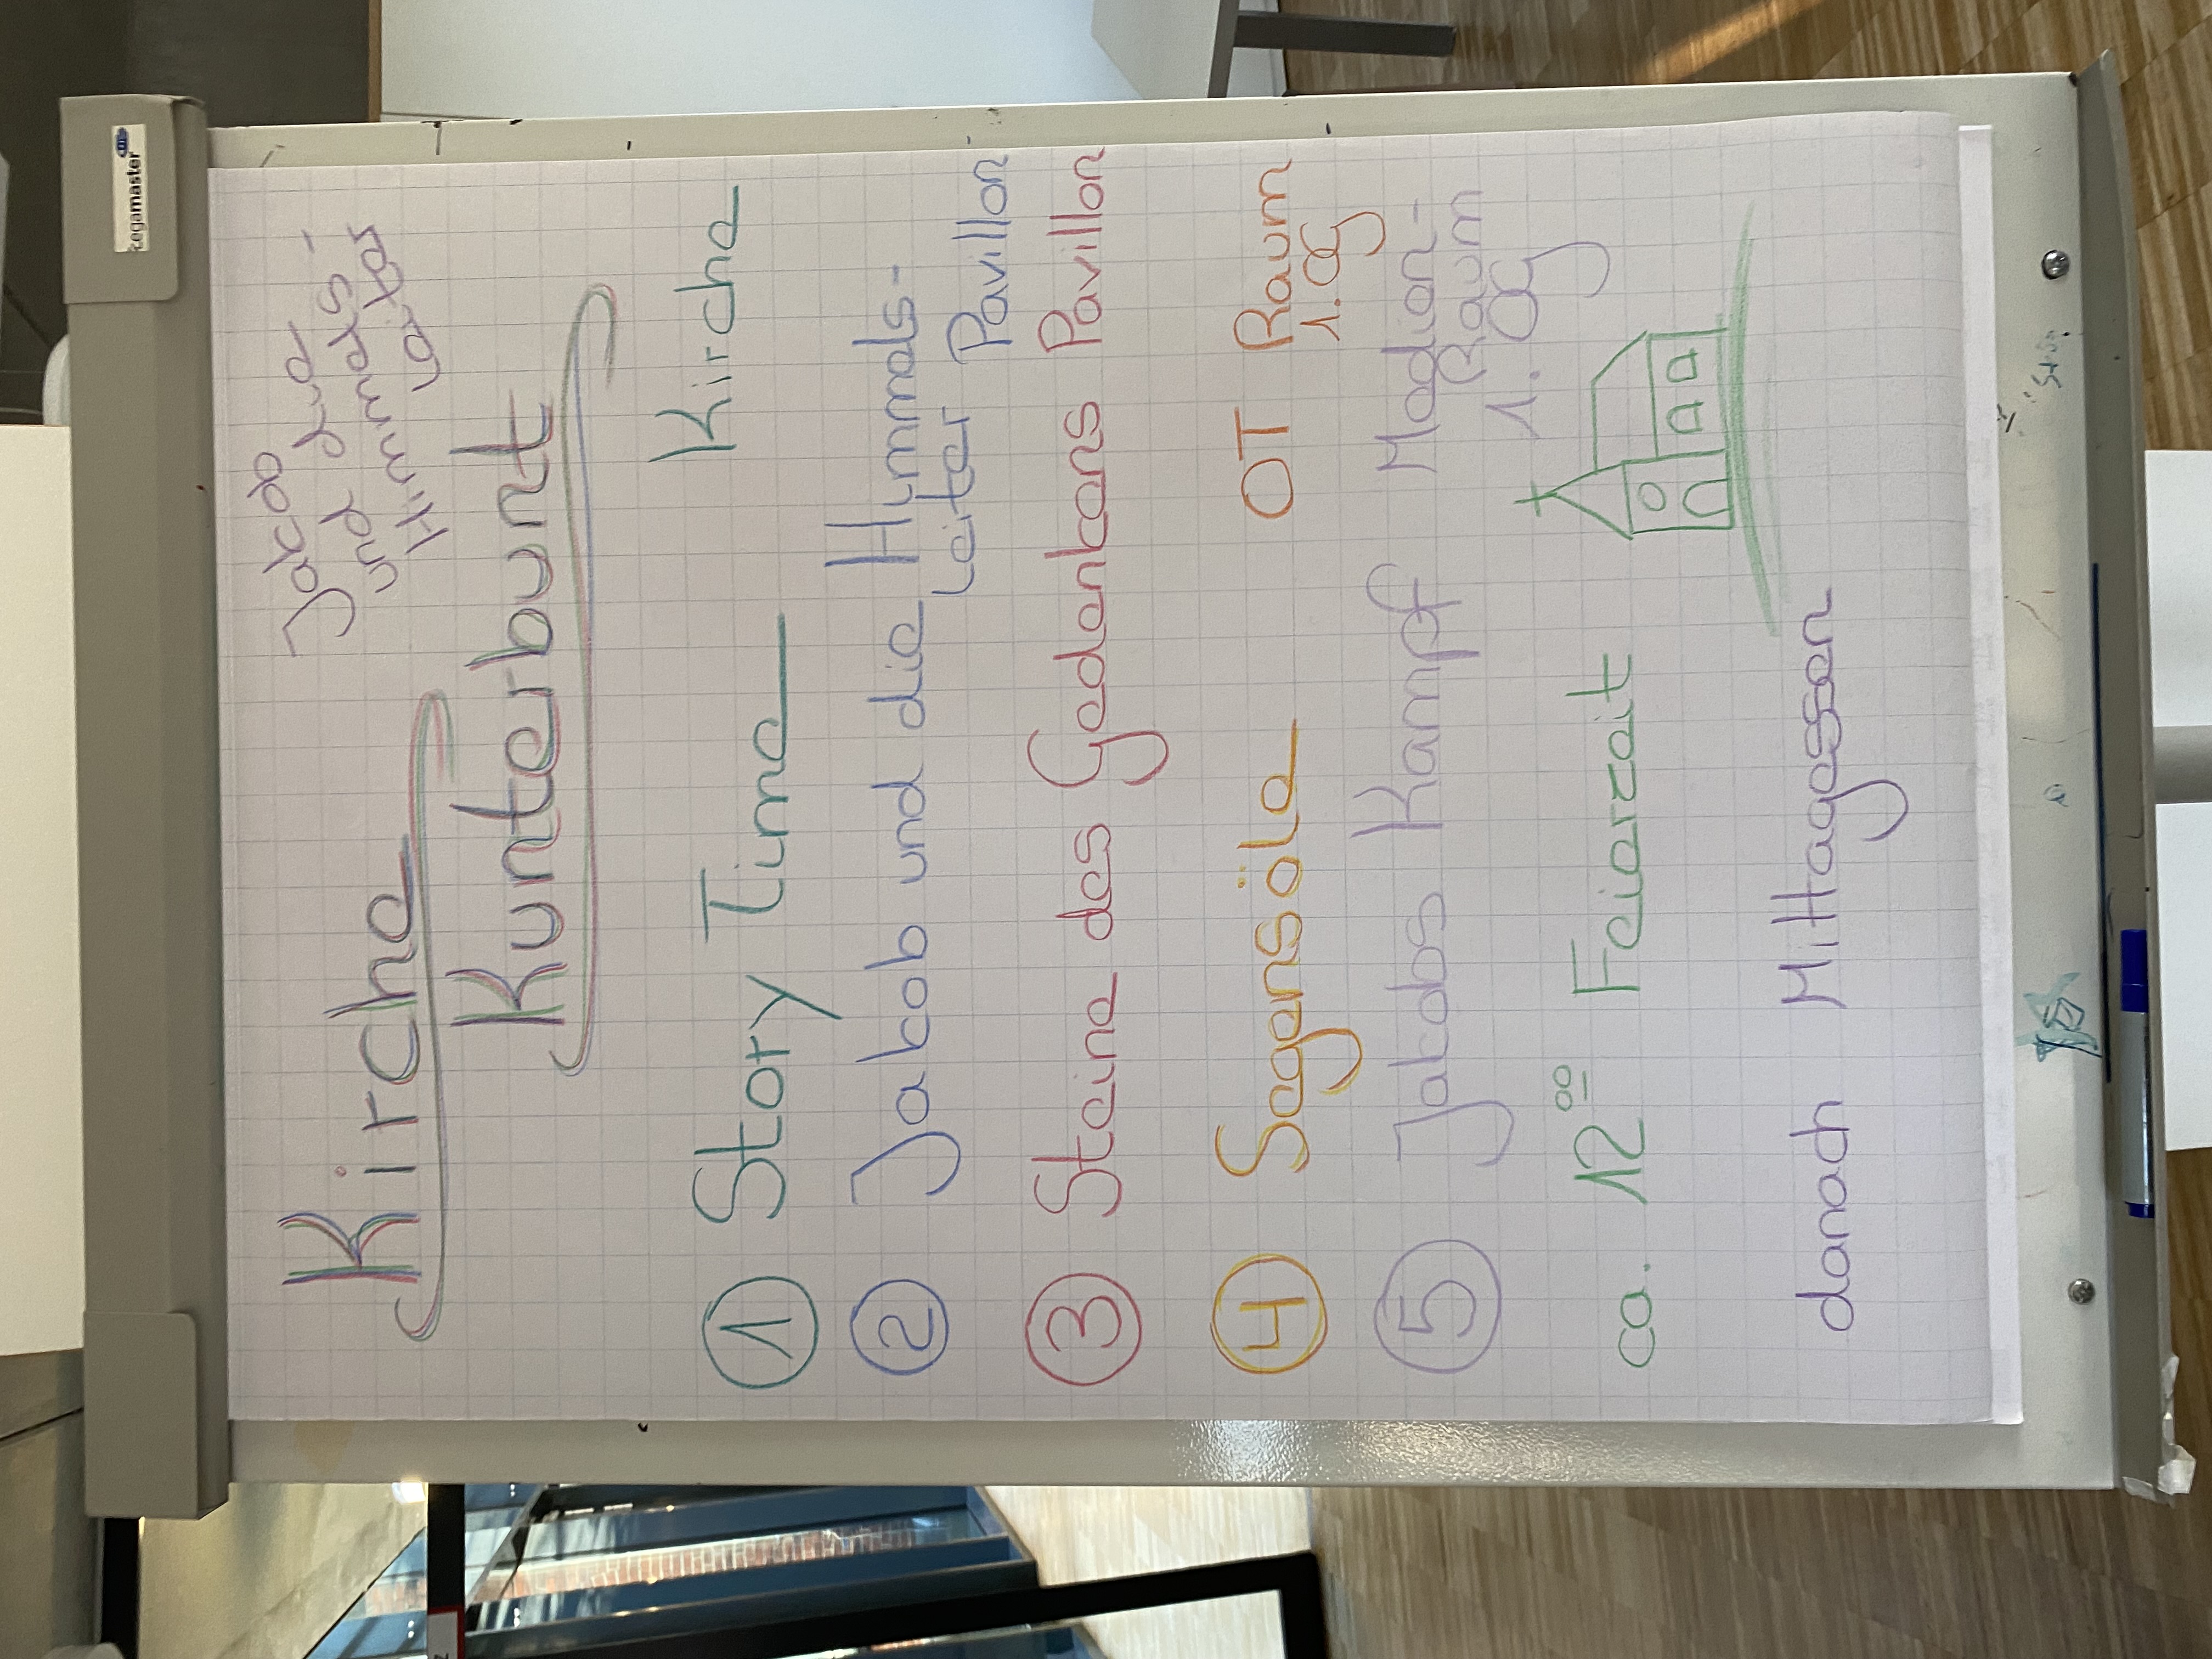 Kirche
Kunterbunt
Jakob
und die
Himmels-
leiter
1 Story Time Kirche
2 Jakob und die Himmels-
leiter Pavillon
3 Steine des Gedenkens Pavillon
4 Segensöle OT Raum
1.OG
5 Jakobs Kampf Medien-
Raum
1. OG
ca. 12 00 Feierzeit
danach Mittagessen
legamaster